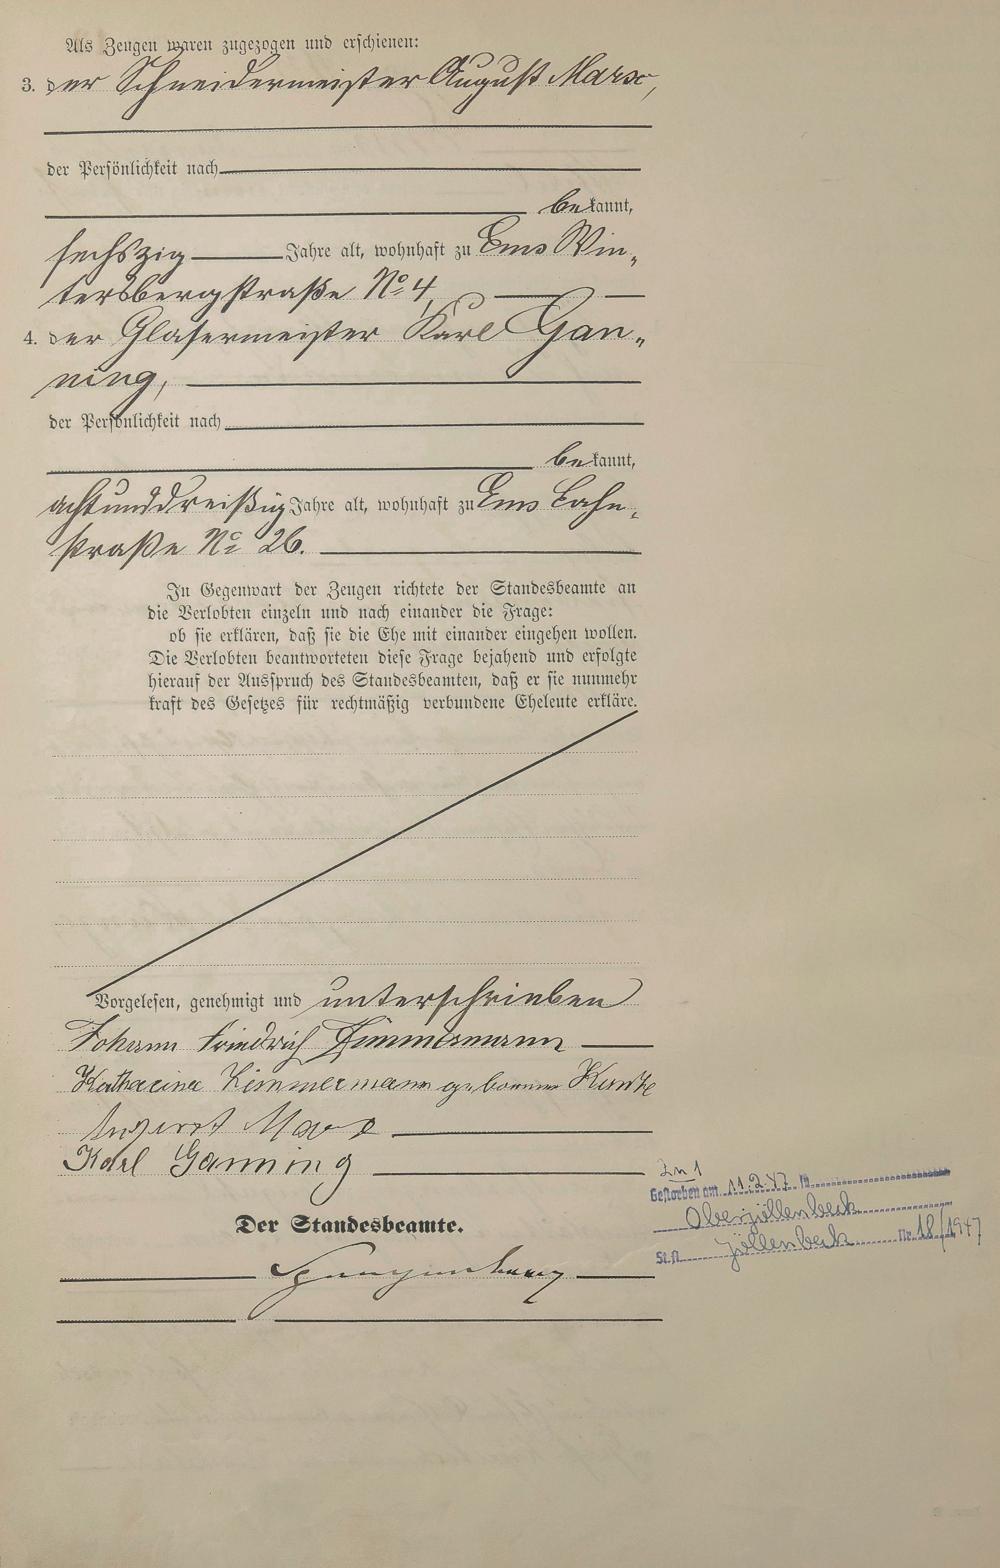 Als Zeugen waren zugezogen und erschienen:
3. der Schneidermeister August Marx,
der Persönlichkeit nach
bekannt,
sechszig Jahre alt, wohnhaft zu Ems Win-
tersbergstraße No 4,
4. der Glasermeister Karl Gan-
ning,
der Persönlichkeit nach
bekannt,
achtunddreißig Jahre alt, wohnhaft zu Ems Lahn-
straße No 26.
In Gegenwart der Zeugen richtete der Standesbeamte an
die Verlobten einzeln und nach einander die Frage:
ob sie erklären, daß sie die Ehe mit einander eingehen wollen.
Die Verlobten beantworteten diese Frage bejahend und erfolgte
hierauf der Ausspruch des Standesbeamten, daß er sie nunmehr
kraft des Gesetzes für rechtmäßig verbundene Eheleute erkläre.
Vorgelesen, genehmigt und unterschrieben
Johann Friedrich Zimmermann
Katharina Zimmermann geborene
August Marx
Karl Ganning
Zu 1
Gestorben am 11.2.47 in
Oberjöllenbeck
St.A. Jöllenbeck Nr. 18/1947
Der Standesbeamte.